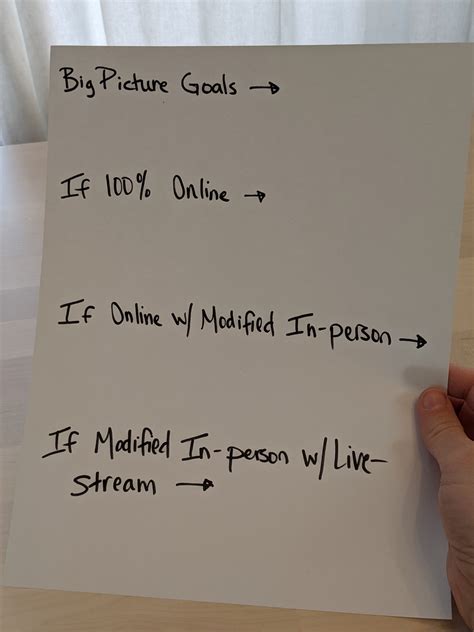 Big Picture Goals →
If 100% Online →
If Online w/ Modified In-person →
If Modified In-person w/ Live-
Stream →